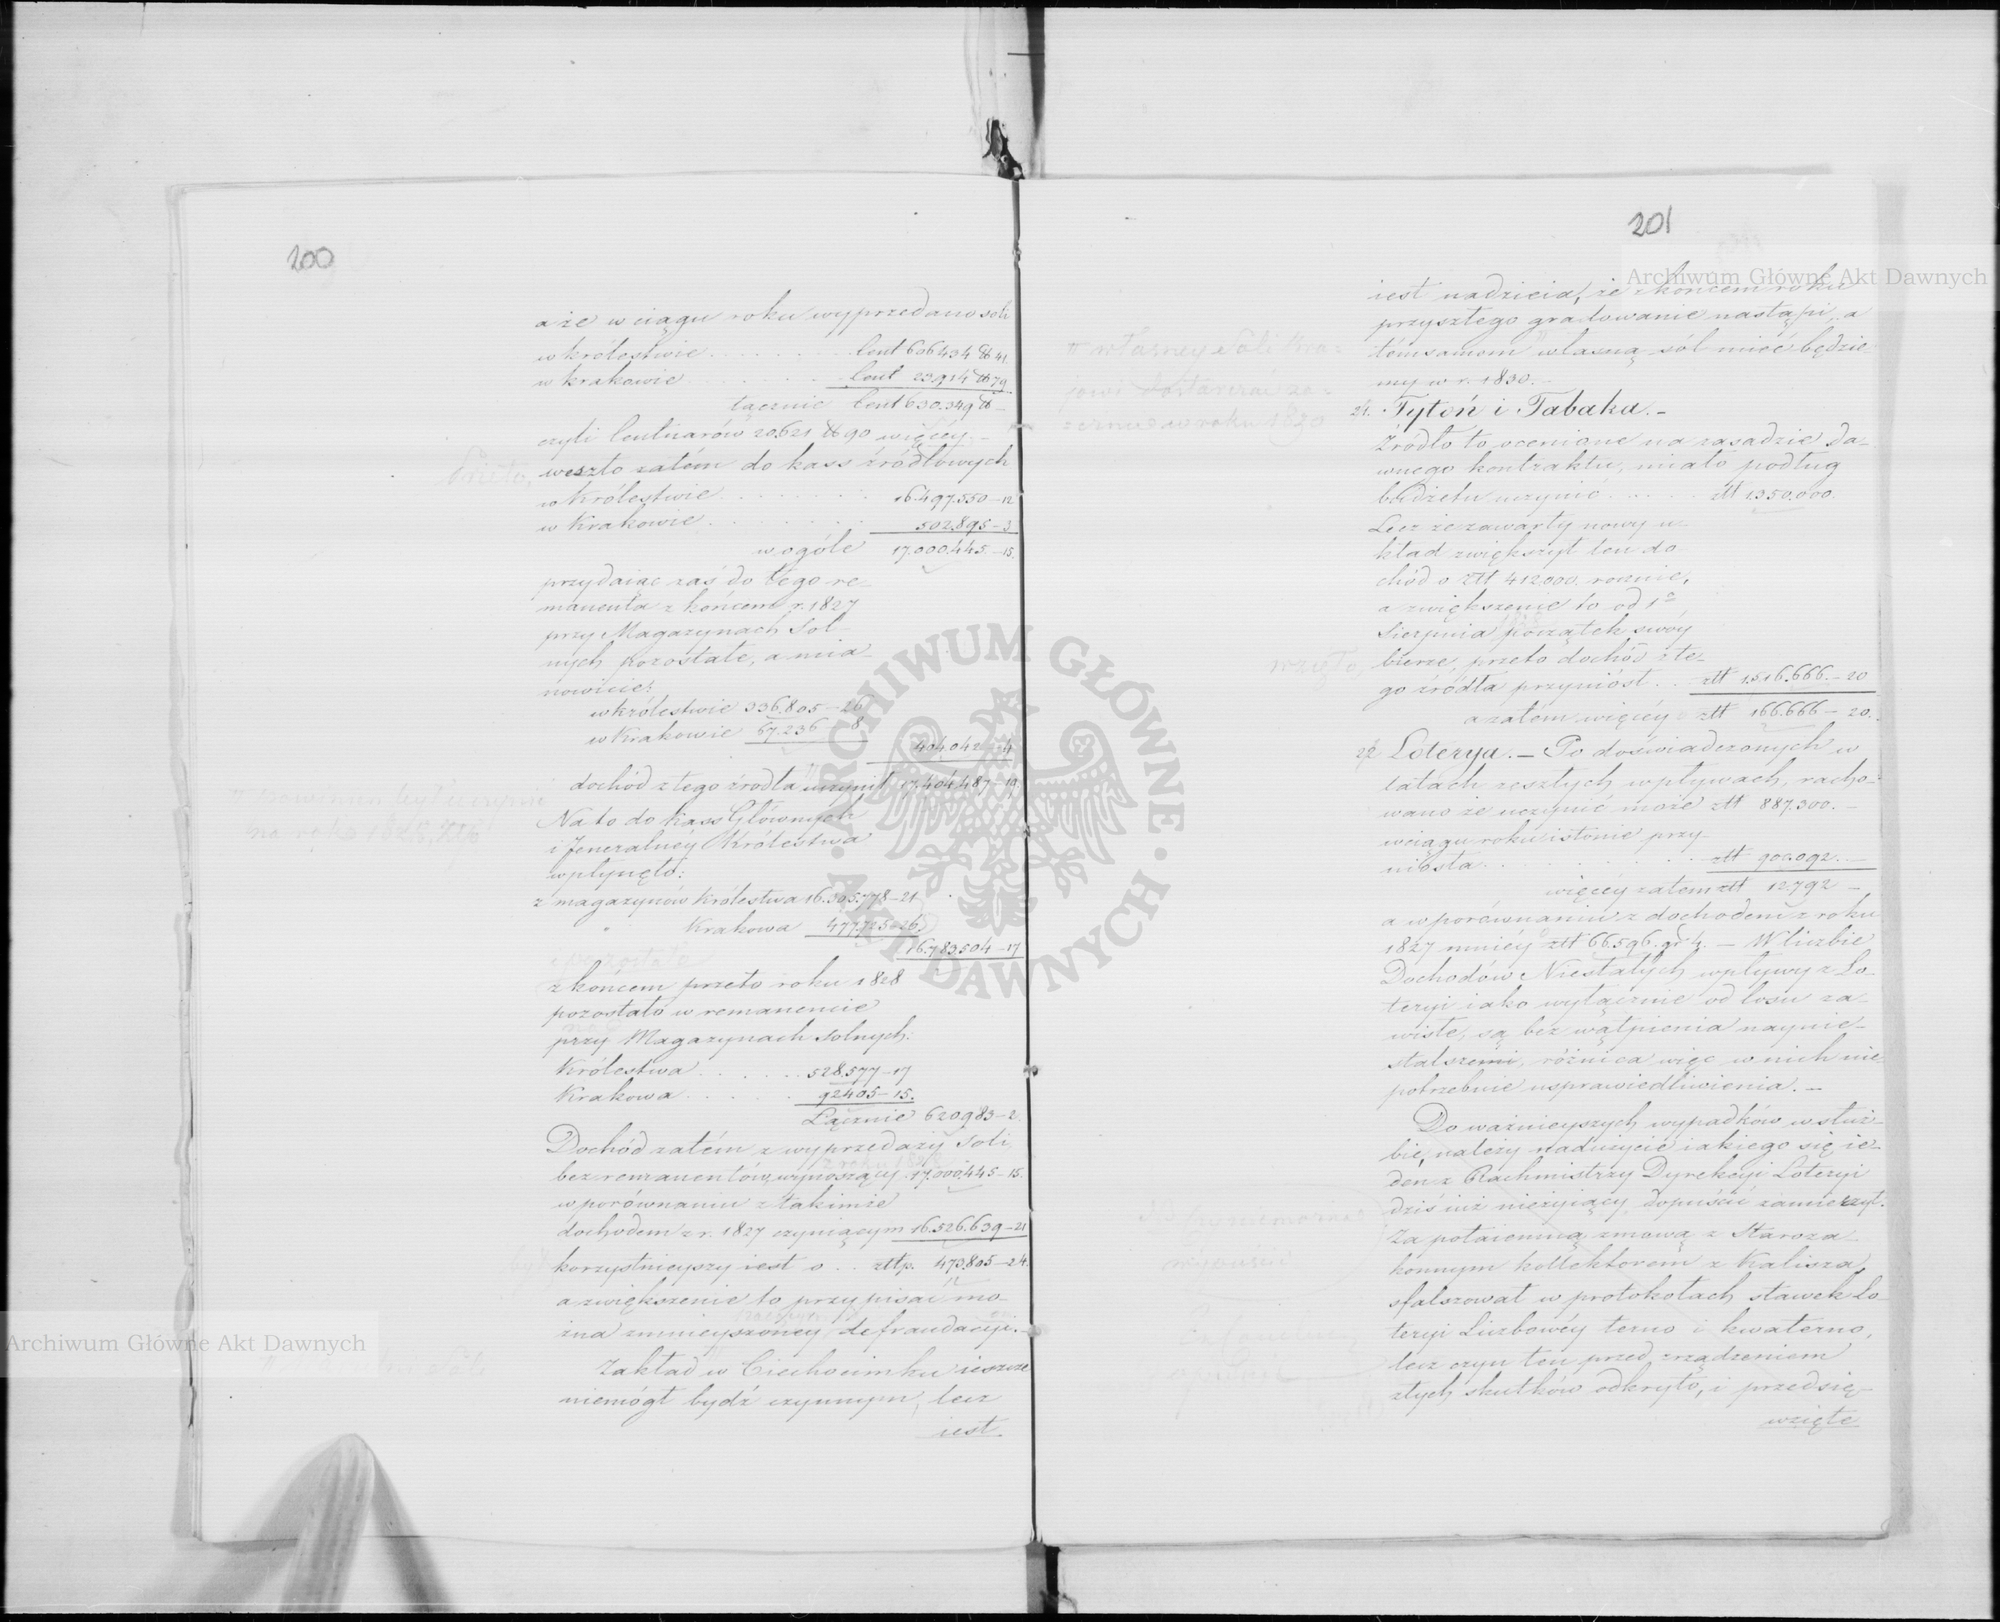 200
a że w ciągu roku wyprzedano soli
w królestwie . . . . . Cent 606434 ℔ 41
w krakowie . . . . . Cent 23.914 ℔ 79
łącznie Cent 630.349 ℔ —
czyli Centnarów 20.621 ℔ 90 więcéy —
weszło zatém do kass źródłowych
w Królestwie . . . . . 16.497.550—12
w Krakowie . . . . . 502.895—3
w ogóle 17.000.445.—15.
przydaiąc zaś do tego re-
manenta z końcem r. 1827
przy Magazynach Sol-
nych pozostałe, a mia-
nowicie:
w królestwie 336.805—26
w Krakowie 67.236—8
404.042—4
dochód z tego źrodła uczynił 17.404.487—19
Na to do kass Głównych
i Jeneralnéy Królestwa
wpłynęło:
z magazynów królestwa 16.305.778—21
" Krakowa 477.725—26
16.783.504—17
z końcem przeto roku 1828
pozostało w remanencie
przy Magazynach Solnych:
Królestwa . . . . . 528.577—17
Krakowa . . . . . 92405—15.
Łącznie 620983—2
Dochód zatém z wyprzedaży Soli,
bez remanentów, wynoszący 17.000.445—15.
w porównaniu z takimże
dochodem z r. 1827 czyniącym 16.526.639—21
korzystnieyszy iest o . . złtp. 473.805—24.
a zwiększenie to przypisać mo-
żna zmnieyszonéy defraudacyi.
Zakład w Ciechocinku ieszcze
niemógł bydź czynnym, lecz
iest
201
iest nadzieia, że z końcem roku
przyszłego gradowanie nastąpi, a
témsamem własną sól mieć będzie-
my w r. 1830.—
21. Tytoń i Tabaka.—
Źródło to ocenione na zasadzie da-
wnego kontraktu, miało podług
budżetu uczynić . . . . złt 1350.000.
Lecz że zawarty nowy u-
kład zwiększył ten do-
chód o złt 412000. rocznie,
a zwiększenie to od 1o
Sierpnia początek swóy
bierze, przeto dochód z te-
go źródła przyniósł . . złt 1.516.666.—20
a zatém więcéy złt 166.666—20.
22 Loterya.— Po doświadczonych w
latach zeszłych wpływach, racho-
wano że uczynić może złt 887.300.—
w ciągu roku istotnie przy-
niosła . . . . . złt 900.092.—
więcéy zatem złt 12.792—
a w porównaniu z dochodem z roku
1827 mniéy złt 66.596. gr 4.— W liczbie
Dochodów Niestałych wpływy z Lo-
teryi iako wyłącznie od losu za-
wisłe, są bez wątpienia naynie-
stalszemi, różnica więc w nich nie
potrzebuie usprawiedliwienia.—
Do ważnieyszych wypadków w służ-
bie, należy nadużycie iakiego się ie-
den z Rachmistrzy Dyrekcyi Loteryi
dziś iuż nieżyiący dopuścić zamierzył.
Za potaiemną zmową z Staroza-
konnym kollektorem z Kalisza,
sfałszował w protokołach stawek Lo-
teryi Liczbowéy terno i kwaterno,
lecz czyn ten przed zrządzeniem
złych skutków odkryto, i przedsię-
wzięte
Archiwum Główne Akt Dawnych
Archiwum Główne Akt Dawnych
ARCHIWUM GŁÓWNE AKT DAWNYCH